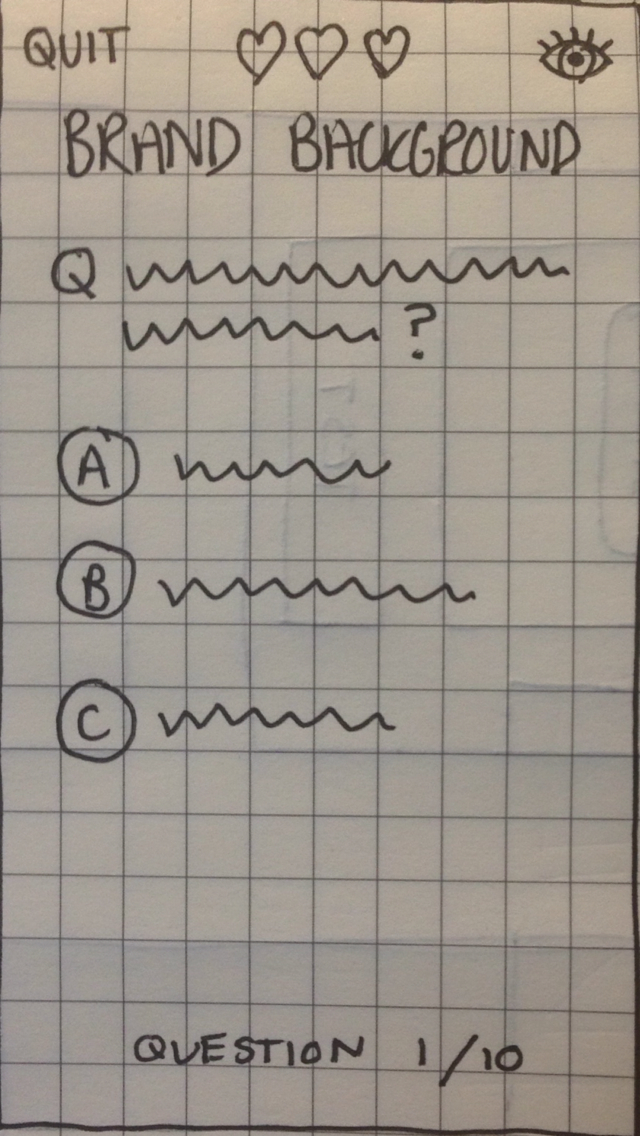 QUIT
BRAND BACKGROUND
Q
?
A
B
C
QUESTION 1/10